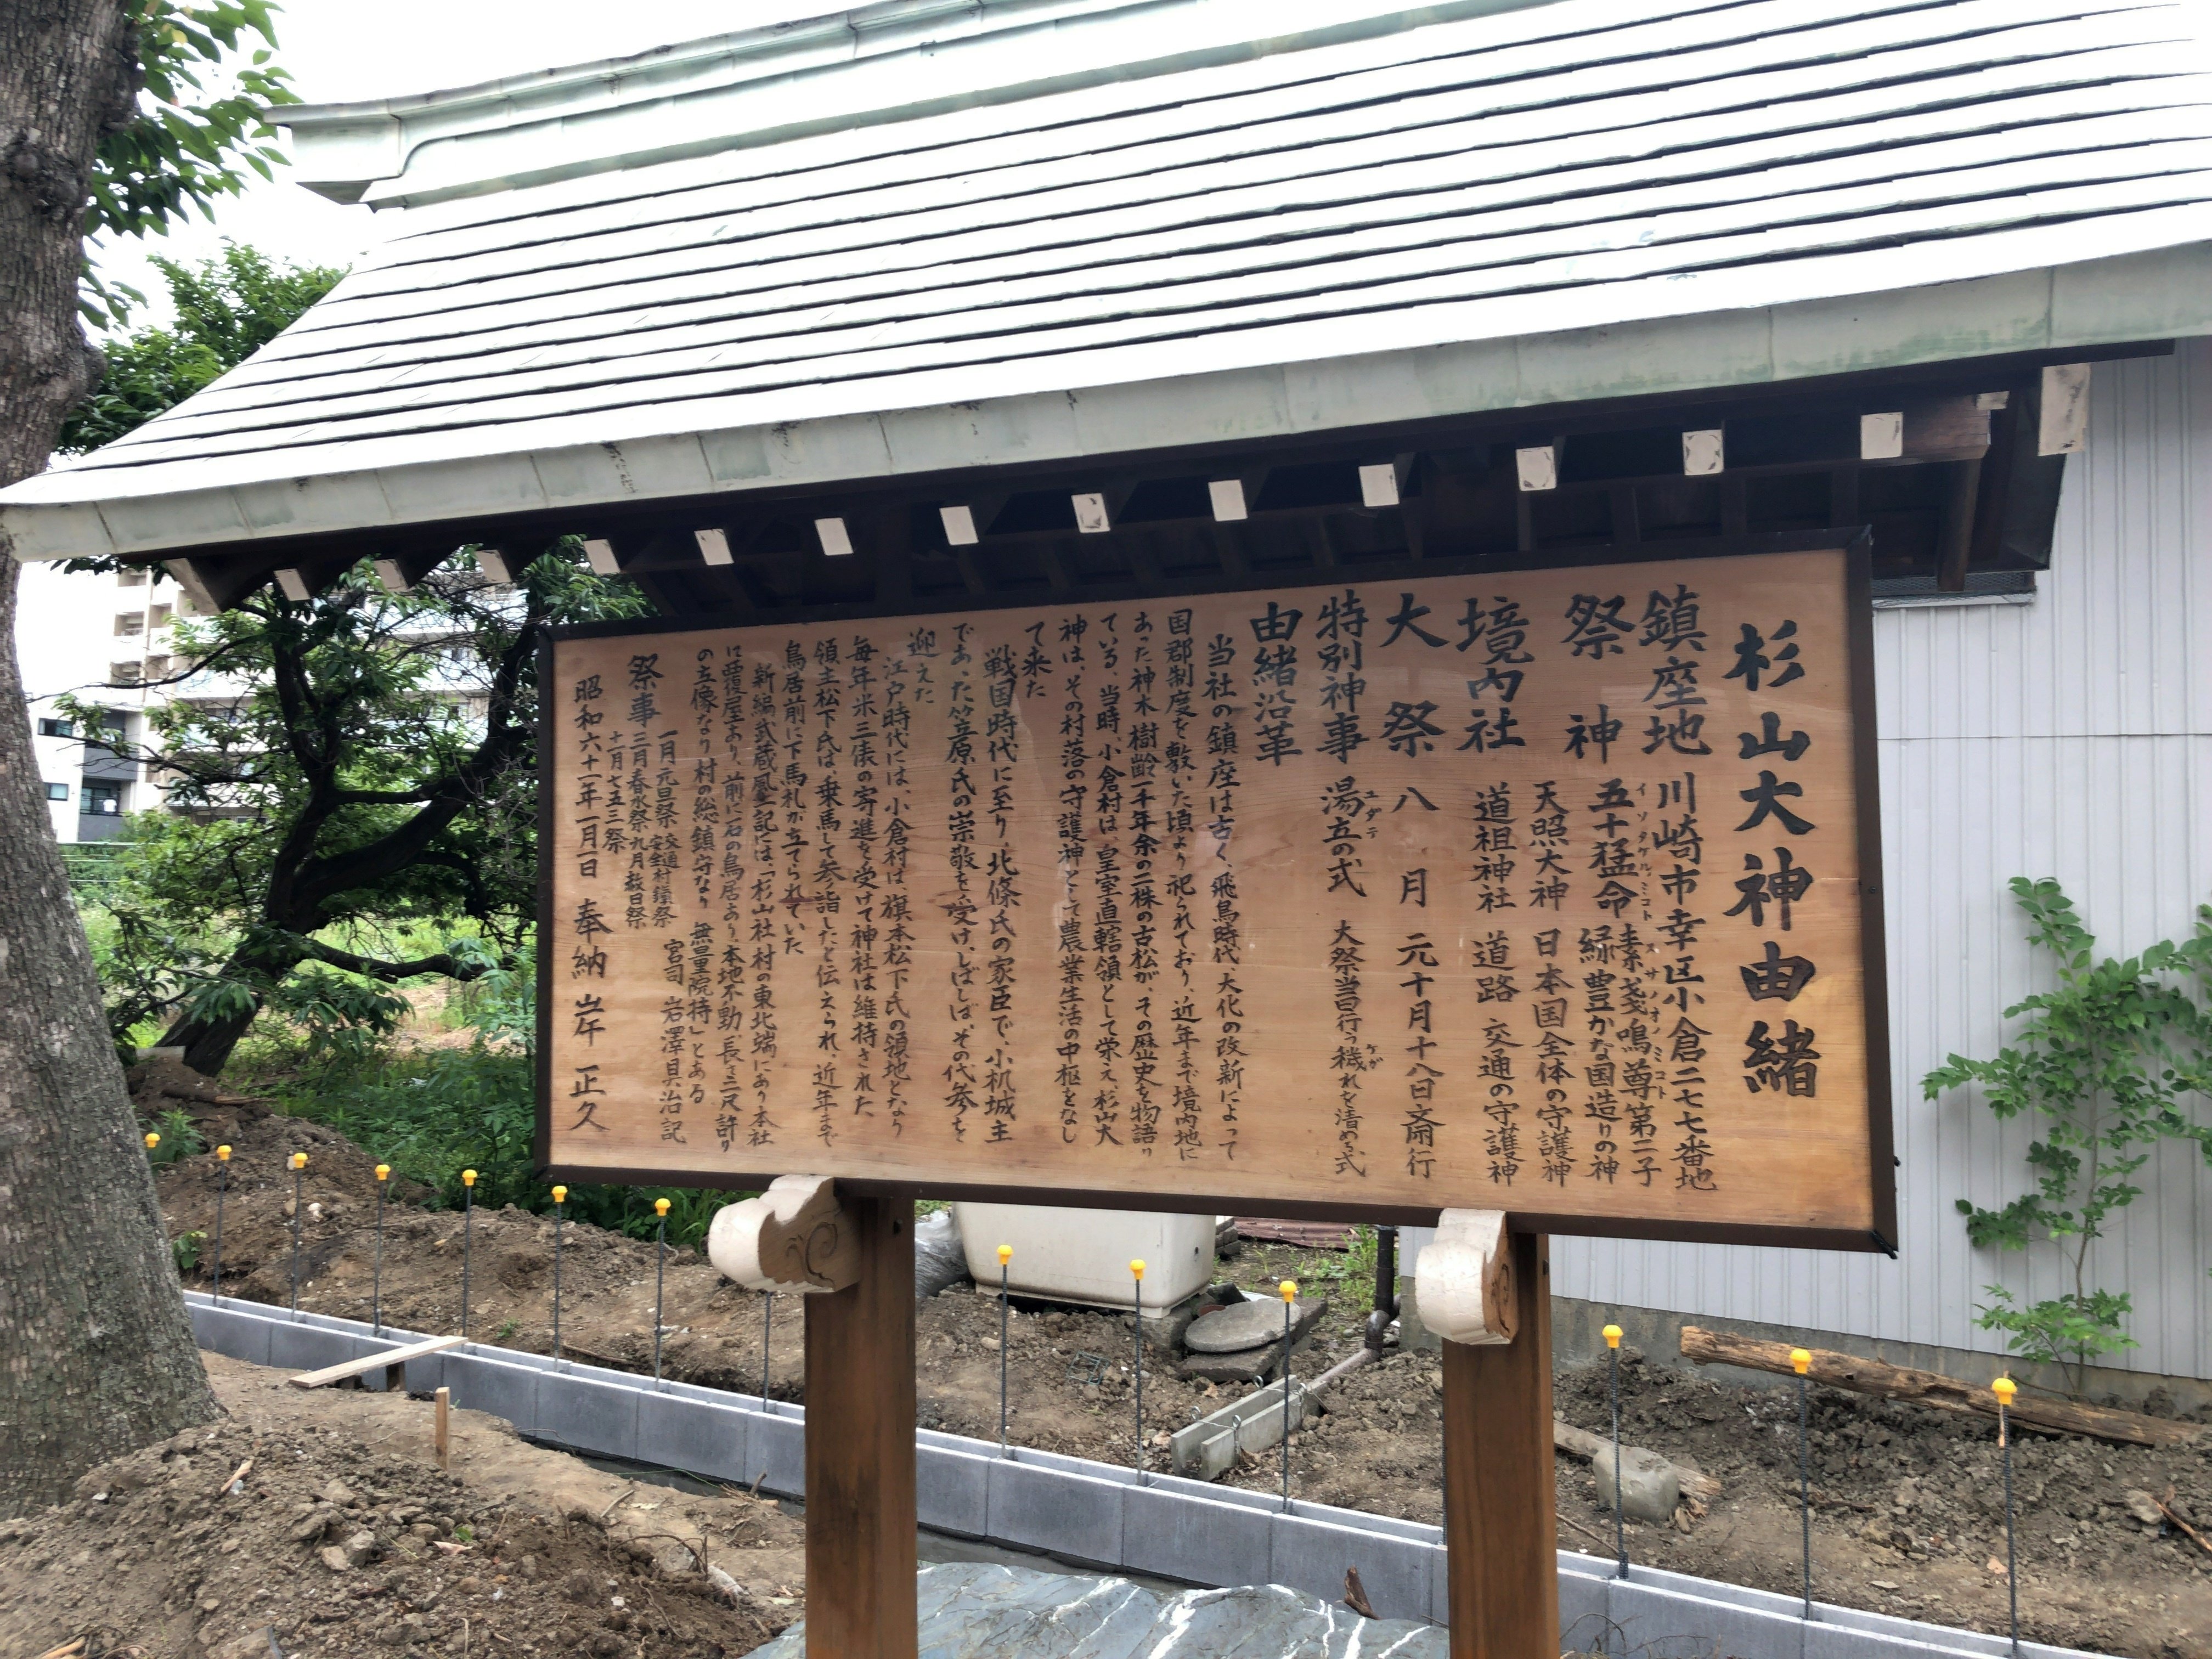 杉山大神由緒
鎮座地 川崎市幸区小倉二七七番地
祭神 五十猛命 素戔鳴尊第二子
イソタケルノミコト スサノオノミコト
緑豊かな国造りの神
天照大神 日本国全体の守護神
境内社 道祖神社 道路 交通の守護神
大祭 八月 元十月十八日斎行
特別神事 湯立の式 大祭当日行う穢れを清める式
ユダテ ケガ
由緒沿革
当社の鎮座は古く、飛鳥時代、大化の改新によって
国郡制度を敷いた頃より祀られており、近年まで境内地に
あった神木、樹齢一千年余の二株の古松が、その歴史を物語り
ている、当時、小倉村は、皇室直轄領として栄え、杉山大
神は、その村落の守護神として農業生活の中枢をなし
て来た
戦国時代に至り、北條氏の家臣で、小机城主
であった笠原氏の崇敬を受け、しばしば、その代参を
迎えた
江戸時代には、小倉村は、旗本松下氏の領地となり
毎年米三俵の寄進を受けて神社は維持された
領主松下氏は、乗馬して参詣したと伝えられ、近年まで
鳥居前に下馬札が立てられていた
新編武蔵風土記には、「杉山社、村の東北端にあり本社
に覆屋あり、前に石の鳥居あり、本地不動、長さ二尺許り
の立像なり村の総鎮守なり 無量院持」とある
宮司 岩澤具治記
祭事 一月元旦祭 交通安全村鎮祭
二月春水祭 九月救日祭
十一月七五三祭
昭和六十一年一月一日 奉納 正久